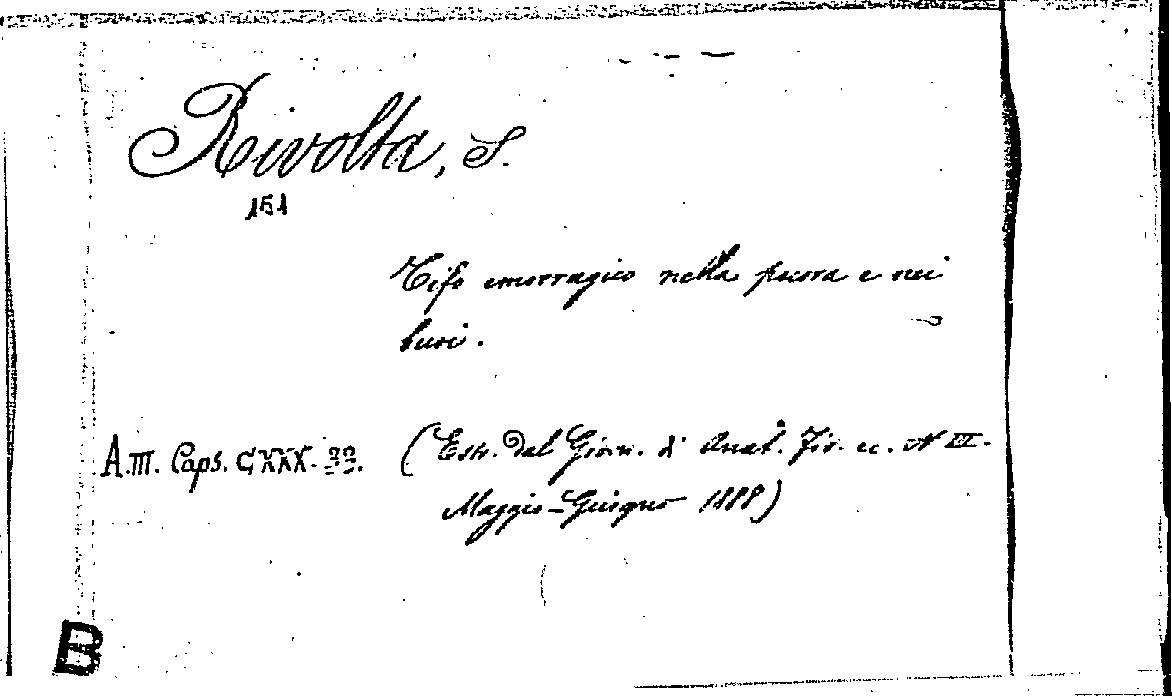 Rivolta, S.
151
Tifo emorragico nella pecora e nei
buoi.
A.III. Caps. CXXX. 22. (Estr. dal Giorn. d' Anat. Fis. ec. N III.
Maggio-Giugno 1888)
B